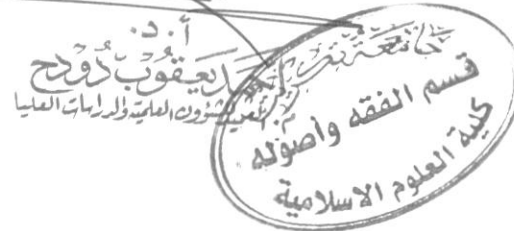 أ.د.
يعقوب دودح
للشؤون العلمية والدراسات العليا
جامعة
قسم الفقه وأصوله
كلية العلوم الاسلامية